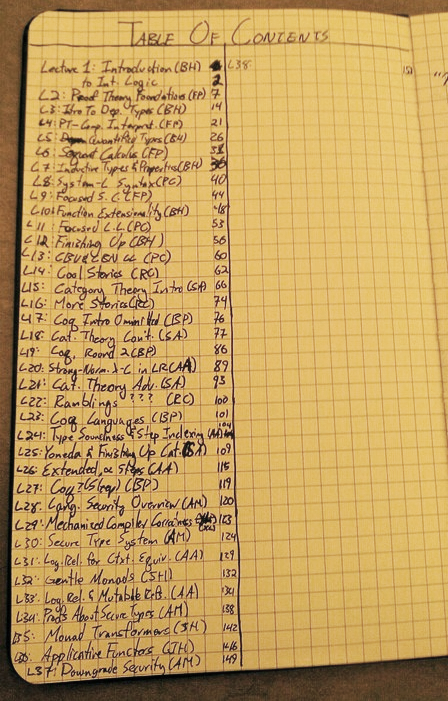 TABLE OF CONTENTS
Lecture 1: Introduction (BH)
to Int. Logic 2
L2: Proof Theory Foundations (FP) 7
L3: Intro To Dep. Types (BH) 14
L4: PT-Comp. Interpret. (FP) 21
L5: Quantified Types (BH) 26
L6: Sequent Calculus (FP) 31
L7: Inductive Types & Properties (BH) 36
L8: System-L Syntax (PC) 40
L9: Focused S.C. (FP) 44
L10: Function Extensionality (BH) 48
L11: Focused L.L. (PC) 53
L12: Finishing Up (BH) 56
L13: CBV & CBN (PC) 60
L14: Cool Stories (RC) 62
L15: Category Theory Intro (SA) 66
L16: More Stories (RC) 74
L17: Coq Intro Omitted (BP) 76
L18: Cat. Theory Cont. (SA) 77
L19: Coq, Round 2 (BP) 86
L20: Strong-Norm. λ-C in LR (AA) 89
L21: Cat. Theory Adv. (SA) 93
L22: Ramblings ??? (RC) 100
L23: Coq Languages (BP) 101
L24: Type Soundness & Step Indexing (AA) 104
L25: Yoneda & Finishing Up Cat. (SA) 109
L26: Extended (AA) 115
L27: Coq? (Sleep) (BP) 119
L28: Lang. Security Overview (AM) 120
L29: Mechanized Compiler 123
L30: Secure Type System (AM) 124
L31: Log. Rel. for Ctxt. Equiv. (AA) 129
L32: Gentle Monads (JH) 132
L33: Log. Rel. & Mutable Refs. (AA) 134
L34: Proofs About Secure Types (AM) 138
L35: Monad Transformers (JH) 142
L36: Applicative Functors (JH) 146
L37: Downgrade Security (AM) 149
L38: 151